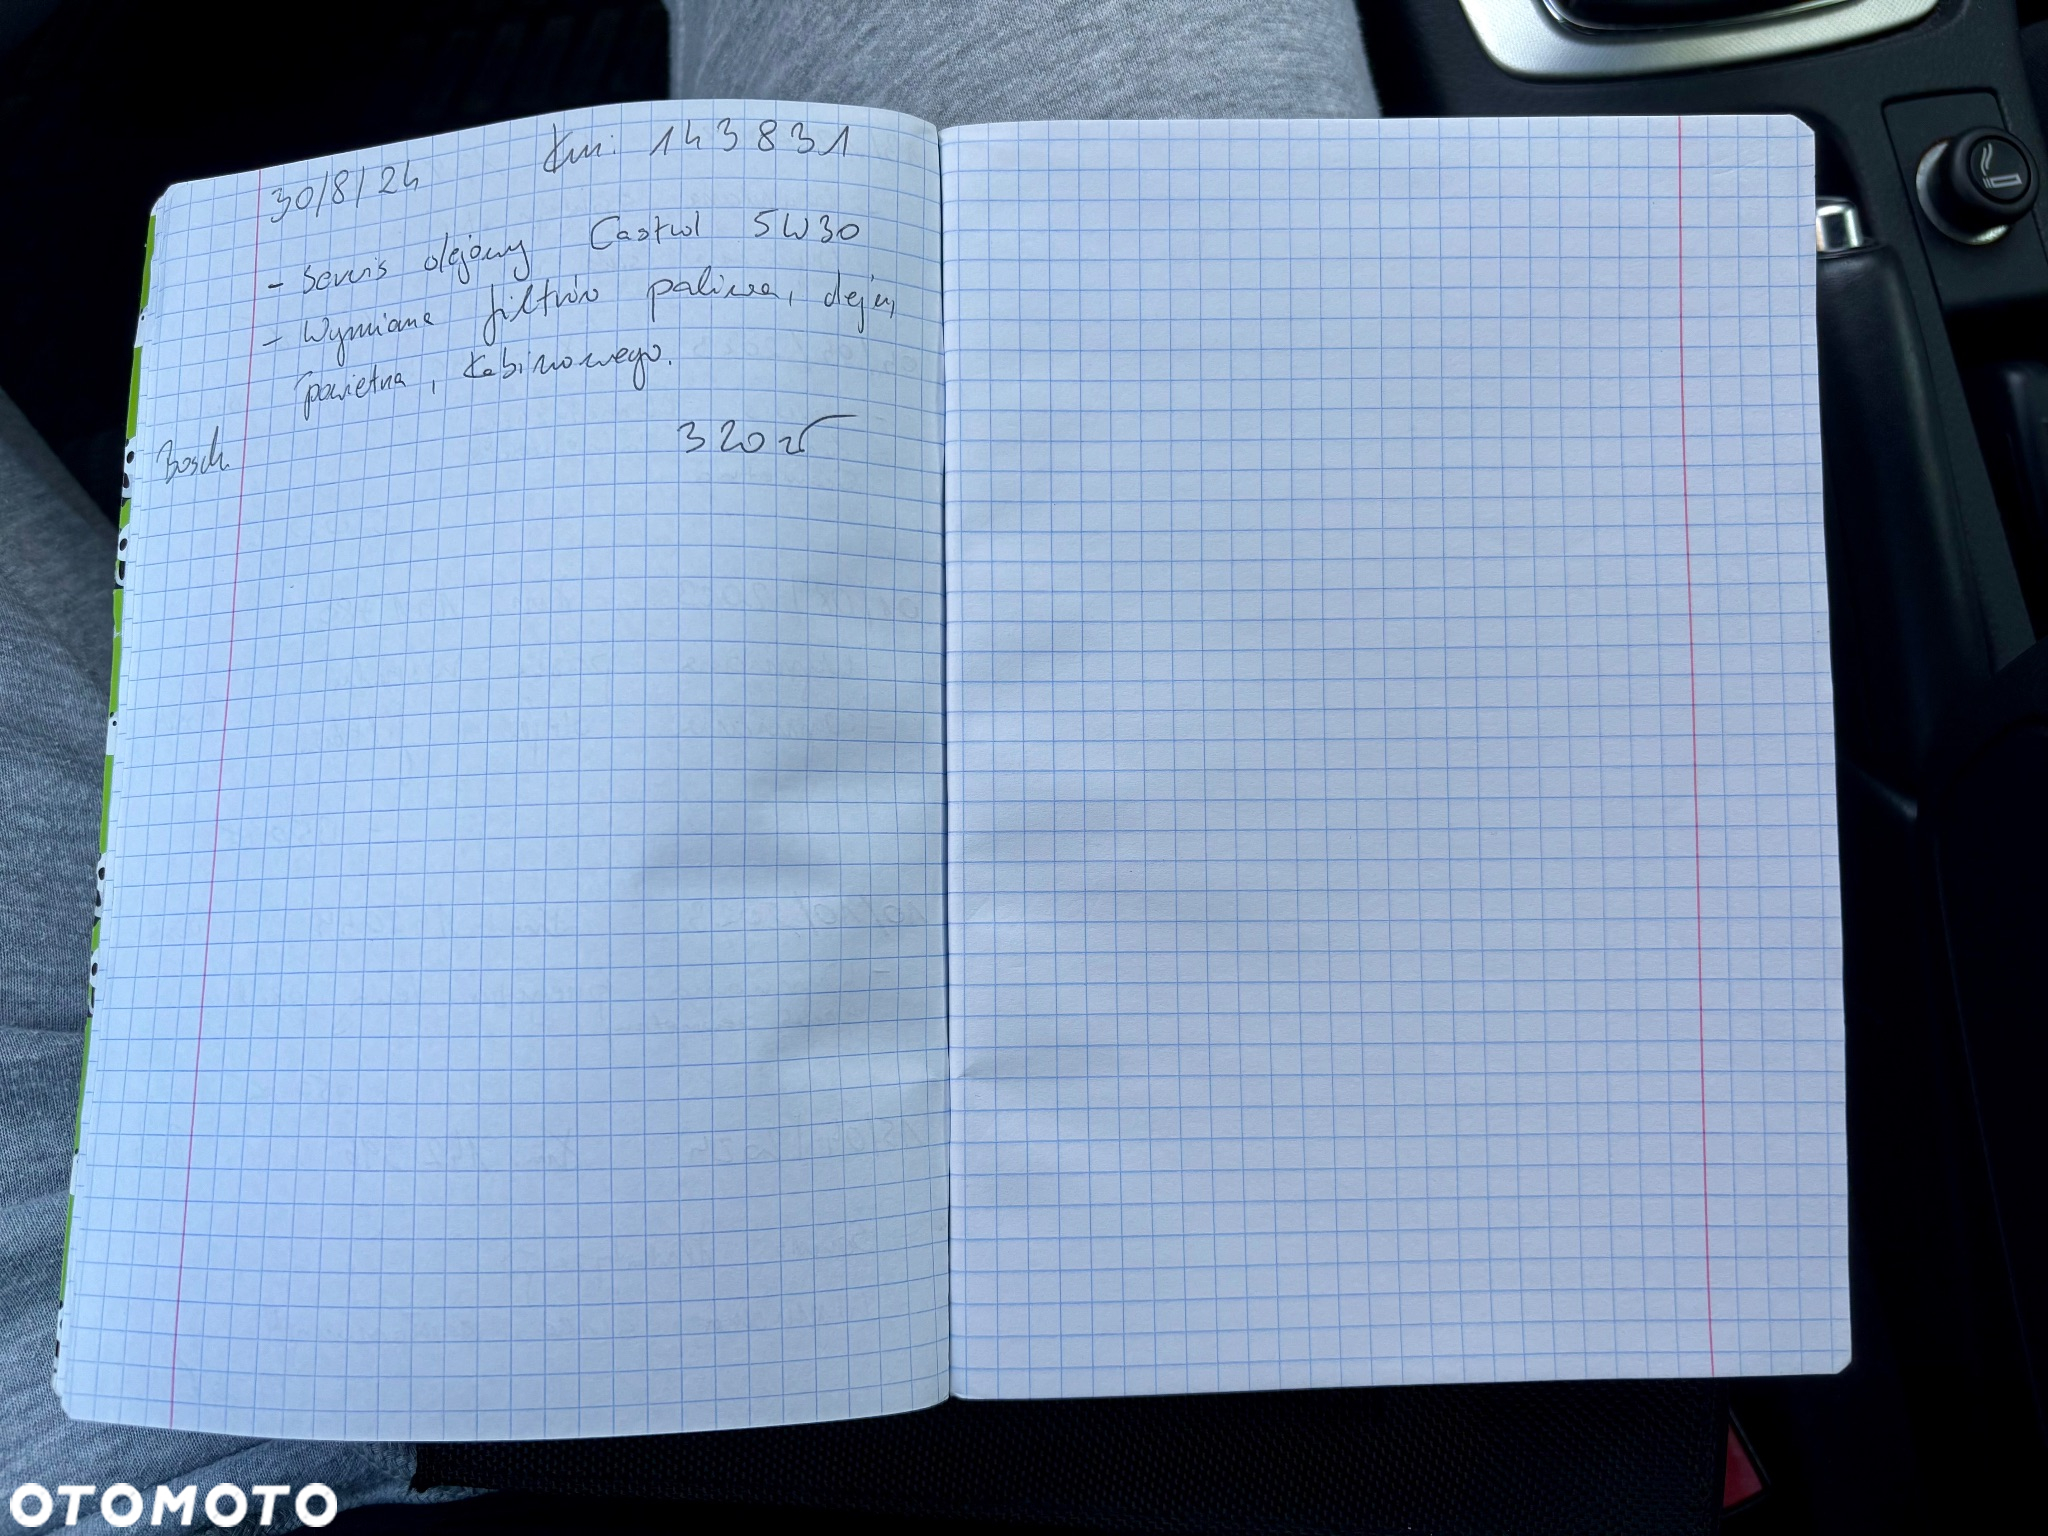 30/8/24 km: 143831
- Serwis olejowy Castrol 5W30
- Wymiana filtrów paliwa, oleju,
powietrza, kabinowego.
Bosch 320 zł
OTOMOTO